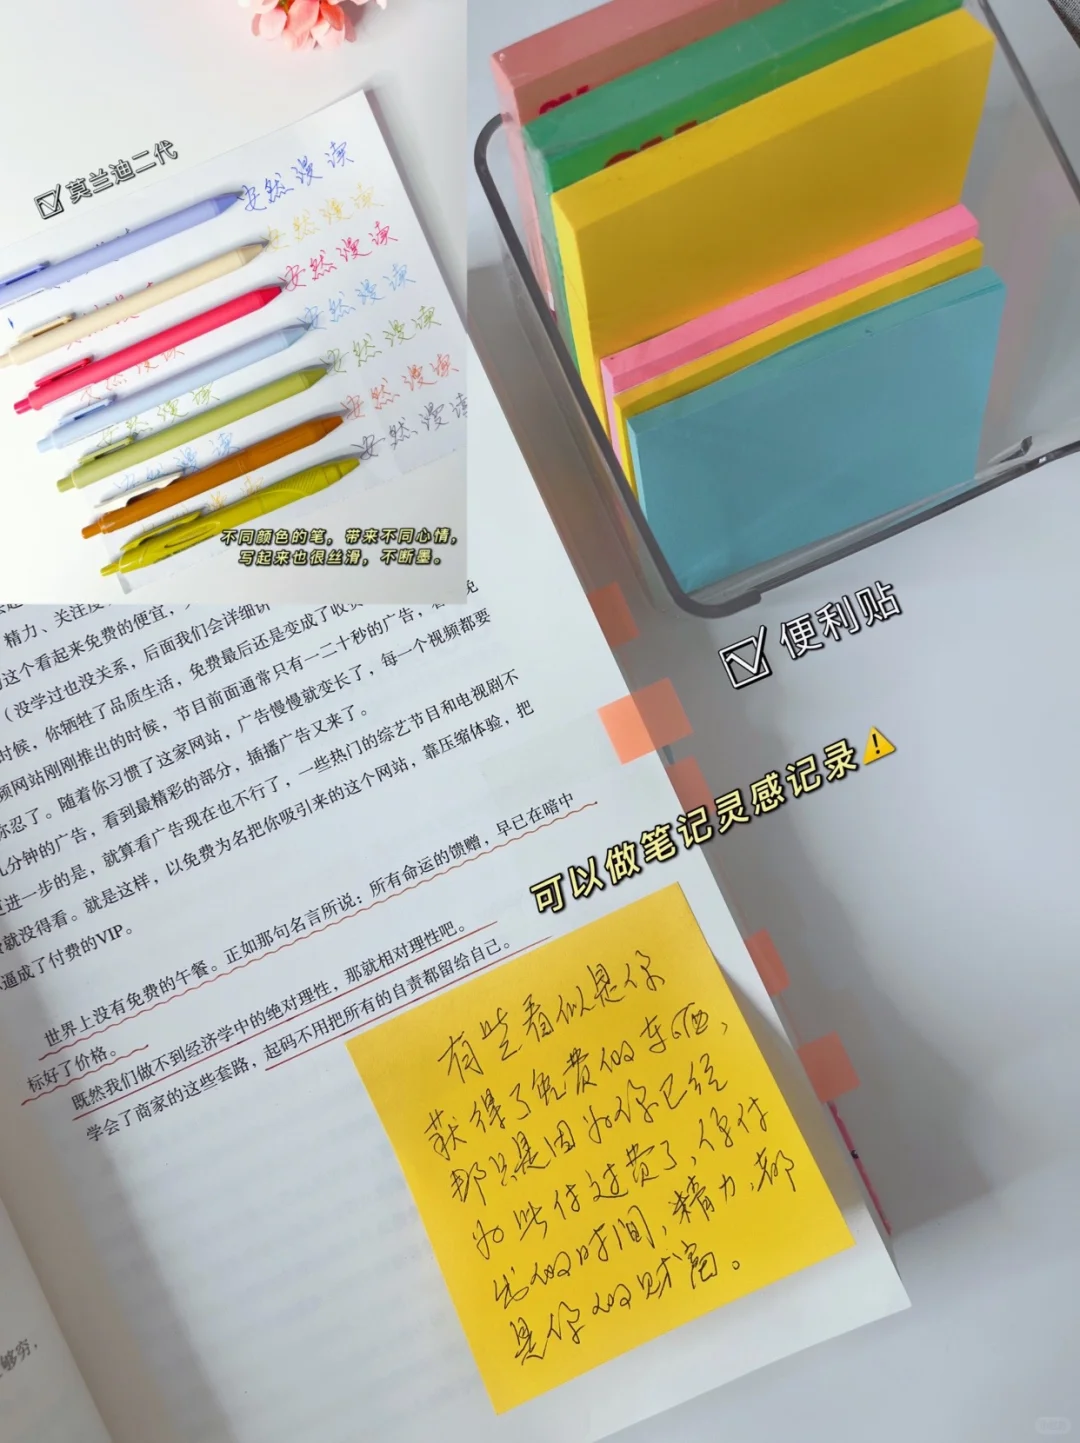 莫兰迪二代
安然漫读
安然漫读
安然漫读
安然漫读
安然漫读
安然漫读
安然漫读
不同颜色的笔，带来不同心情，
写起来也很丝滑，不断墨。
便利贴
可以做笔记灵感记录
精力、关注度
这个看起来免费的便宜，
（没学过也没关系，后面我们会详细讲
时候，你牺牲了品质生活，免费最后还是变成了收费
频网站刚刚推出的时候，节目前面通常只有一二十秒的广告，
你忍了。随着你习惯了这家网站，广告慢慢就变长了，每一个视频都要
几分钟的广告，看到最精彩的部分，插播广告又来了。
更进一步的是，就算看广告现在也不行了，一些热门的综艺节目和电视剧不
费就没得看。就是这样，以免费为名把你吸引来的这个网站，靠压缩体验，把
逼成了付费的VIP。
世界上没有免费的午餐。正如那句名言所说：所有命运的馈赠，早已在暗中
标好了价格。
既然我们做不到经济学中的绝对理性，那就相对理性吧。
学会了商家的这些套路，起码不用把所有的自责都留给自己。
有些看似是你
获得了免费的东西，
那只是因为你已经
为此付过费了，你付
出的时间，精力，都
是你的财富。
够穷，